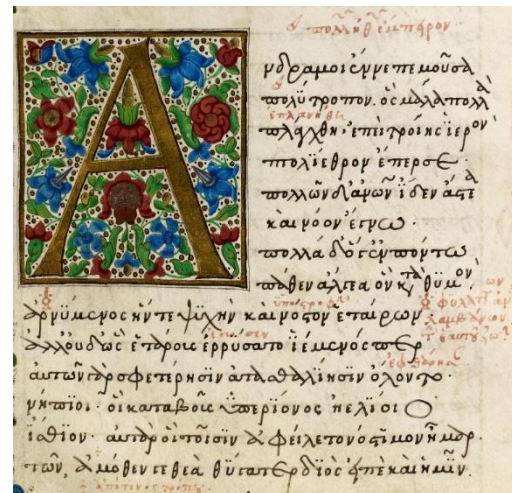 ἔμπειρον
Ἀνδρα μοι ἔννεπε μοῦσα
πολύτροπον. ὃς μάλα πολλὰ
ἐπλανήθη
πλάγχθη. ἐπεὶ τροίης ἱερὸν
πτολίεθρον ἔπερσε.
πολλῶν δ' ἀνων ἴδεν ἄστεα
καὶ νόον ἔγνω.
πολλὰ δ' ὅγ' ἐν πόντω
πάθεν ἄλγεα ὃν κατὰ θυμόν
ἀρνύμενος ἥν τε ψυχὴν καὶ νόστον ἑταίρων
ἀλλ' οὐδ' ὣς ἑτάρους ἐρρύσατο ἱέμενός περ
αὐτῶν γὰρ σφετέρησιν ἀτασθαλίησιν ὄλοντο.
νήπιοι. οἳ κατὰ βοῦς ὑπερίονος ἠελίοιο
ἤσθιον. αὐτὰρ ὁ τοῖσιν ἀφείλετο νόστιμον ἦμαρ.
τῶν, ἁμόθεν γε θεὰ θύγατερ διὸς εἰπὲ καὶ ἡμῖν.